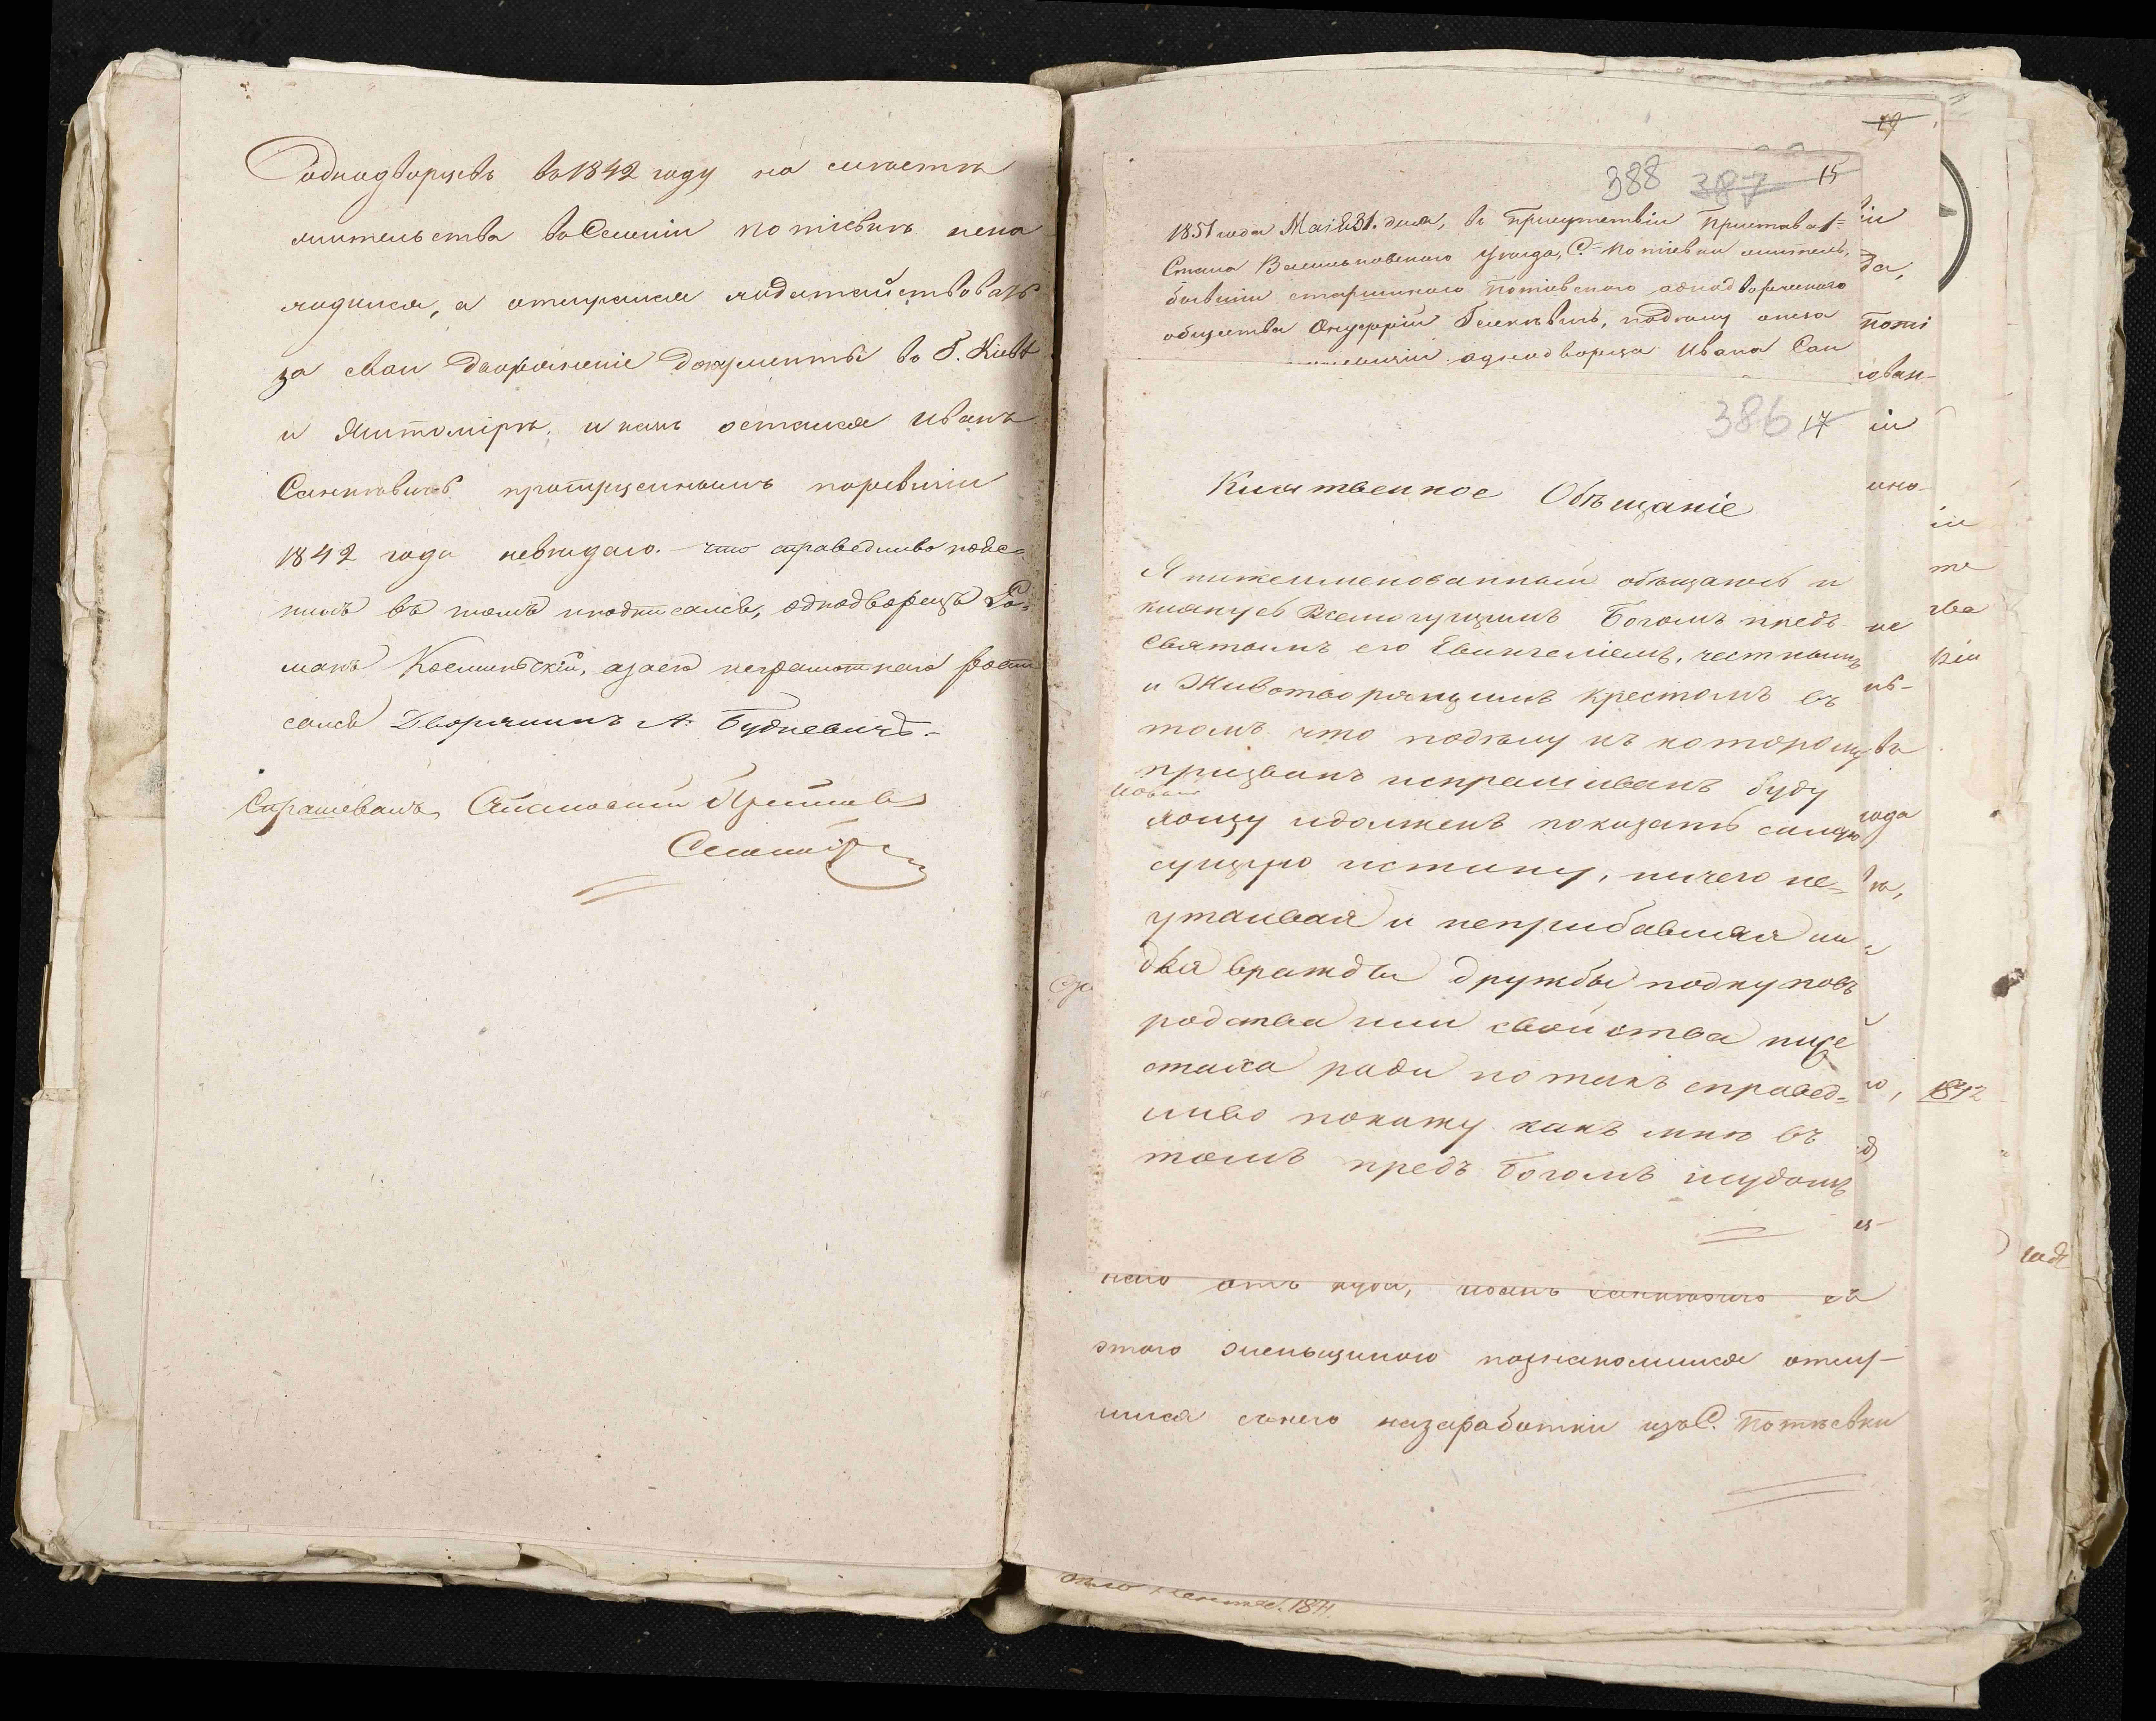 однодворцевъ въ 1842 году на мѣстѣ
жительства въ Селеніи Потіевкѣ нена
ходился, а отправился ходатайствовать
за свои дворянскіе документы въ Г. Кіевъ
и Житомірѣ, и какъ остался Иванъ
Санкевичъ пропущеннымъ поревизіи
1842 года невѣдаю. что справедливо пояс-
нилъ въ томъ иподписался, однодворецъ Ро-
манъ Косминскій, азаего неграмотнаго роспи
сался Дворянинъ А. Будкевичъ.
Спрашивалъ Становой Приставъ
29
388 387 15
1851 года Маія 31. дня, въ присутствіи Пристава 1=
Стана Васильковскаго уѣзда, С. Потіевки житель,
бывшій старшиною Потіевскаго однодворческаго
общества Онуфрій
однодворца Ивана Сан
386 17
Клятвенное Обѣщаніе
Я нижеименованный обѣщаюсь и
клянусь Всемогущимъ Богомъ предъ
Святымъ его Евангеліемъ, честнымъ
и Животворящимъ крестомъ въ
томъ что подѣлу къ которому
призванъ испрашиванъ буду
хощу идолженъ показать самую
сущую истину, ничего не-
утаивая и неприбавляя ни
для вражды дружбы подкуповъ
родства или свойства ниже
страха ради но такъ справед-
ливо покажу какъ мнѣ въ
томъ предъ Богомъ исудомъ
него отъ куда, Иванъ Санкевичъ съ
этого женщиною познакомился отлу-
чился снего назаработки изъ С. Потѣевки
1842